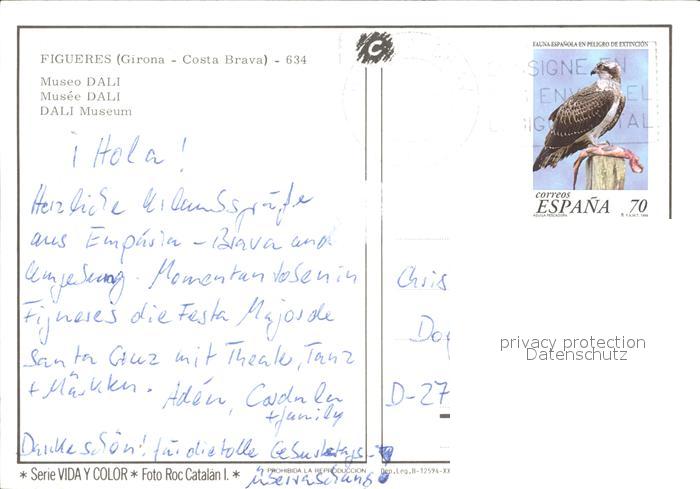 FIGUERES (Girona - Costa Brava) - 634
Museo DALI
Musée DALI
DALI Museum
¡Hola!
Herzliche Urlaubsgrüße
aus Empúria-Brava und
Umgebung. Momentan in
Figueres die Festa Major de
Santa Cruz mit Theater, Tanz
+ Märkten.
Adén,
+ family
Dankeschön! für die tolle Geburtstags-
überraschung
* Serie VIDA Y COLOR * Foto Roc Catalán I. *
PROHIBIDA LA REPRODUCCION
Dep.Leg.B-12594-XX
C
FAUNA ESPAÑOLA EN PELIGRO DE EXTINCIÓN
correos
ESPAÑA 70
AGUILA PESCADORA
Chris
D-27
privacy protection
Datenschutz